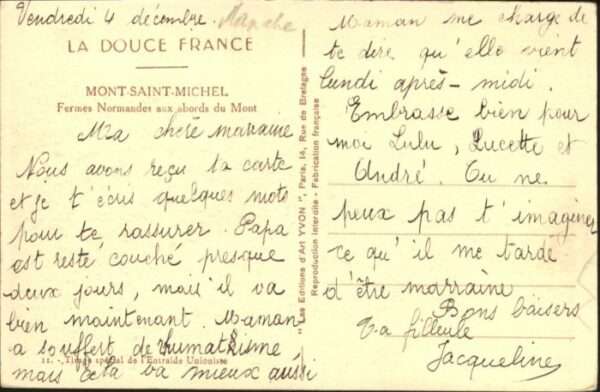 Vendredi 4 décembre. Manche
LA DOUCE FRANCE
MONT-SAINT-MICHEL
Fermes Normandes aux abords du Mont
Ma chère marraine
Nous avons reçu ta carte
et je t'écris quelques mots
pour te rassurer. Papa
est resté couché presque
deux jours, mais il va
bien maintenant. Maman
a souffert de rhumatisme
11. - Tirage spécial de l'Entraide Unioniste
mais cela va mieux aussi
"Les Editions d'Art YVON", Paris, 14, Rue de Bretagne
Reproduction interdite - Fabrication française
Maman me charge de
te dire qu'elle vient
lundi après-midi.
Embrasse bien pour
moi Lulu, Lucette et
André. Tu ne
peux pas t'imaginer
ce qu'il me tarde
d'être marraine
Bons baisers
Ta filleule
Jacqueline